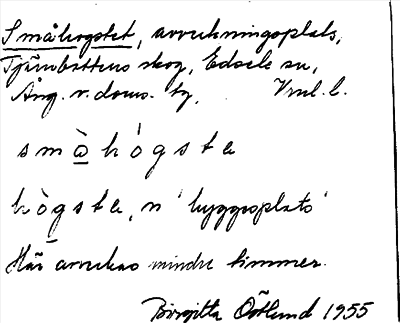 Småhogstet, avverkningsplats,
Tjärnbottens skog, Edsele sn,
Ång. v. doms. by, Vml. l.
småhògste
hògste, n 'hyggesplats'
Här avverkas mindre timmer.
Birgitta Östlund 1955